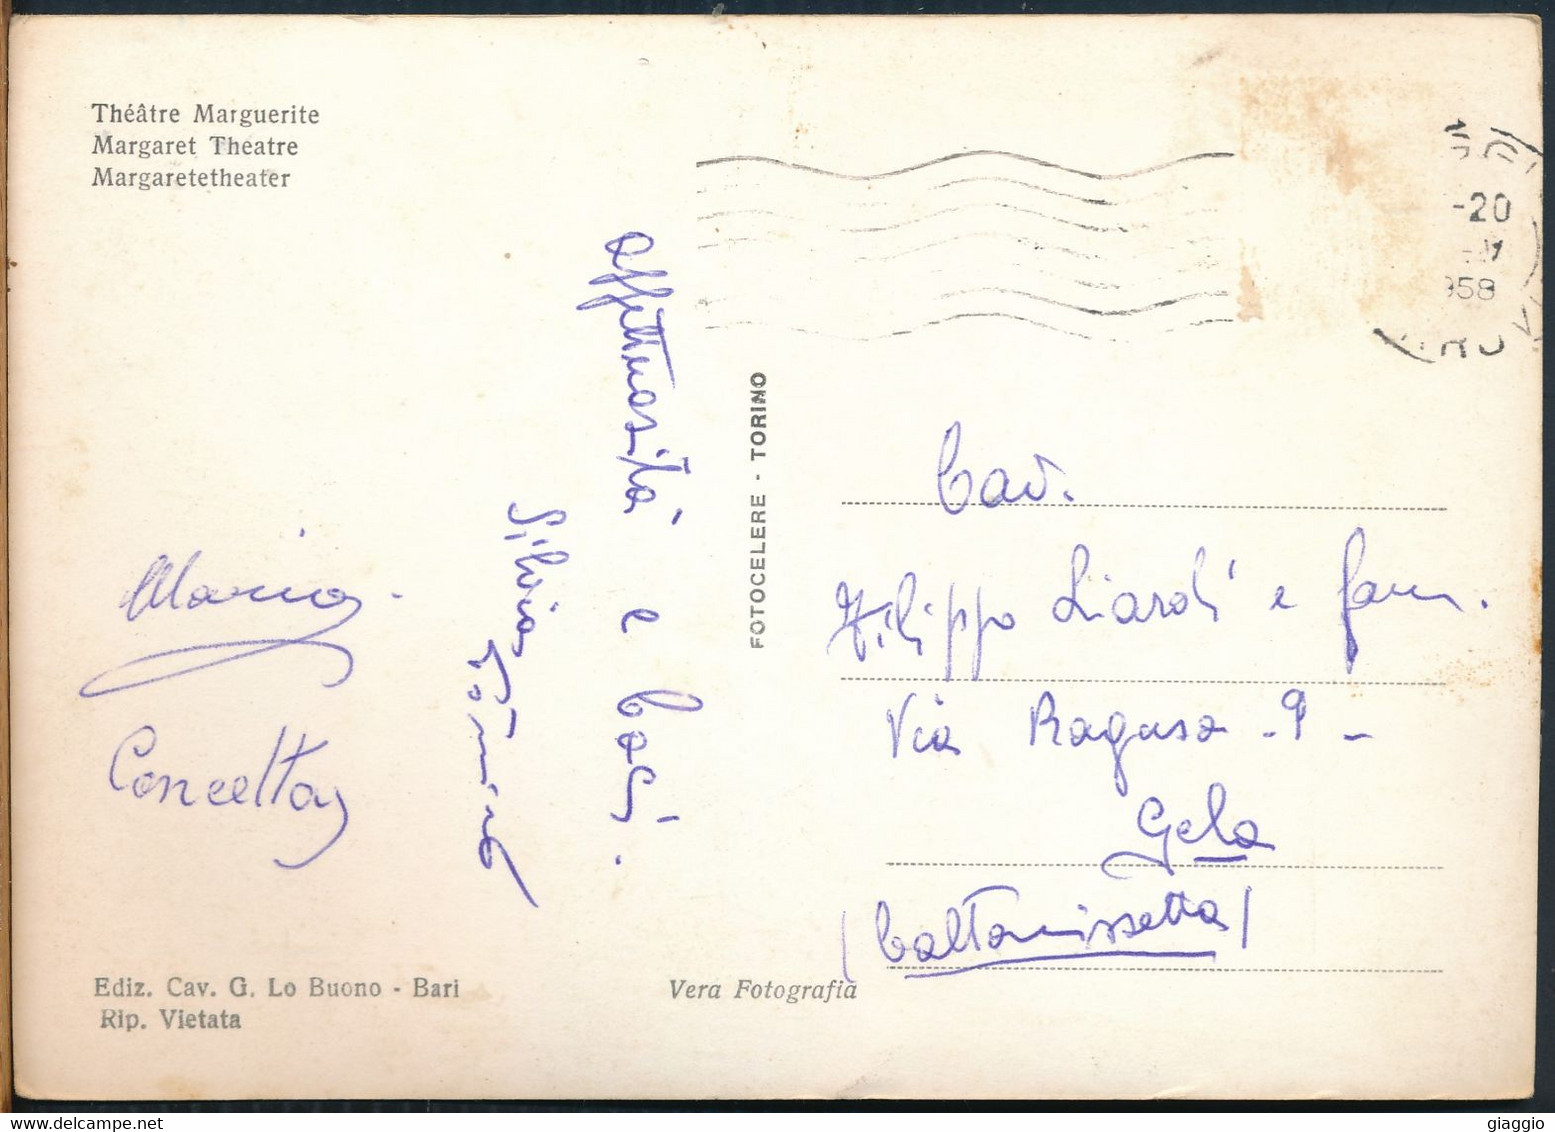 Théâtre Marguerite
Margaret Theatre
Margaretetheater
-20
958
affettuosità e baci.
Silvia
Mario.
Concetta
FOTOCELERE - TORINO
Cav.
Filippo Liardi e fam.
Via Ragusa - 9 -
Gela
(Caltanissetta)
Ediz. Cav. G. Lo Buono - Bari
Rip. Vietata
Vera Fotografia
giaggio
delcampe.net